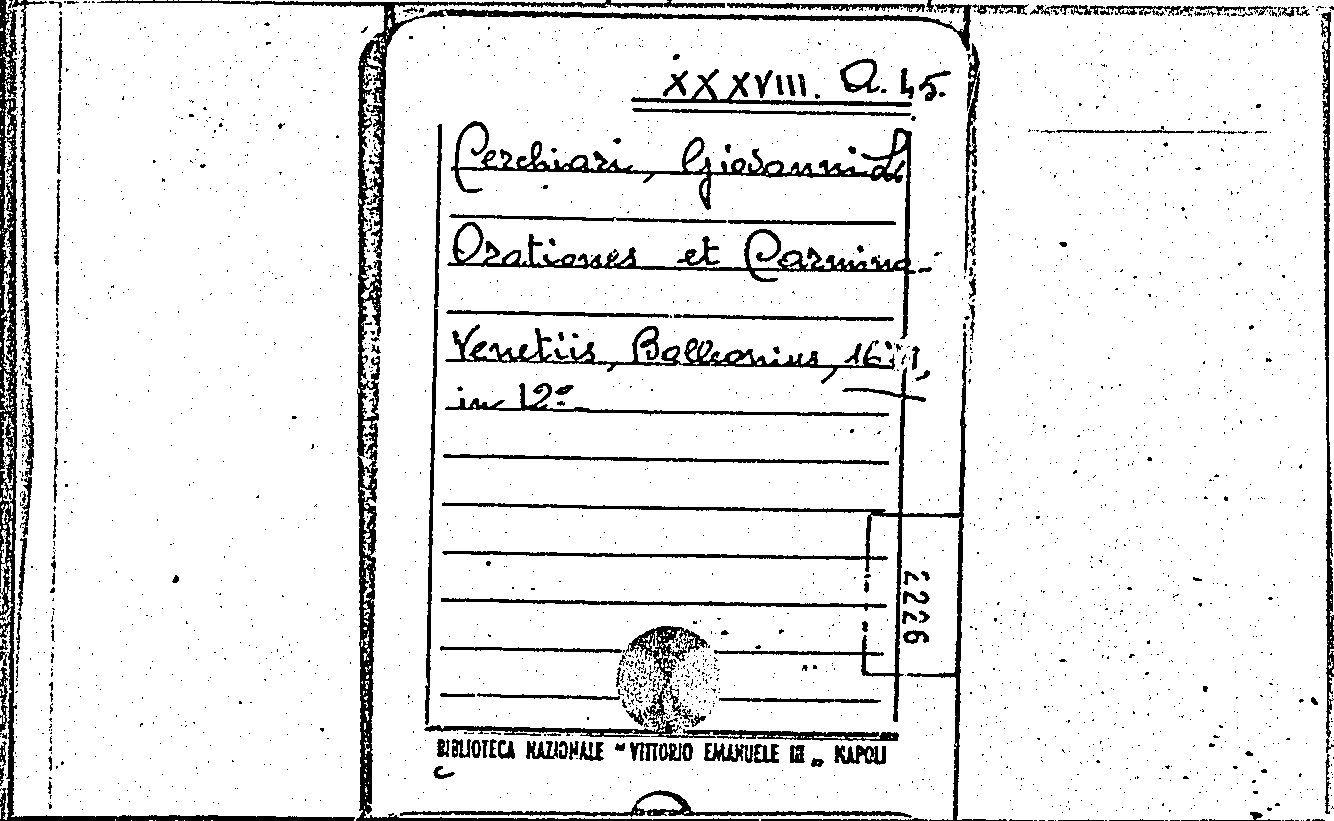 XXXVIII. A. 45.
Cerchiari, Giovanni L.
Orationes et Carmina -
Venetiis, Balleonius,
in 12º
2226
BIBLIOTECA NAZIONALE "VITTORIO EMANUELE III„ NAPOLI